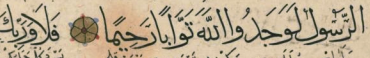 الرَّسُولُ لَوَجَدُوا اللَّهَ تَوَّابًا رَحِيمًا ۝ فَلَا وَرَبِّكَ